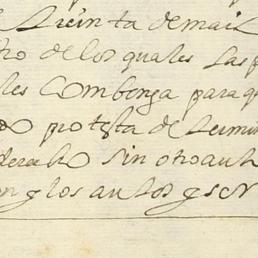 treinta de mais
tro de los quales las p
les Combenga para q
protesta de termin
derecho sin otro aut
en q los autos q se N